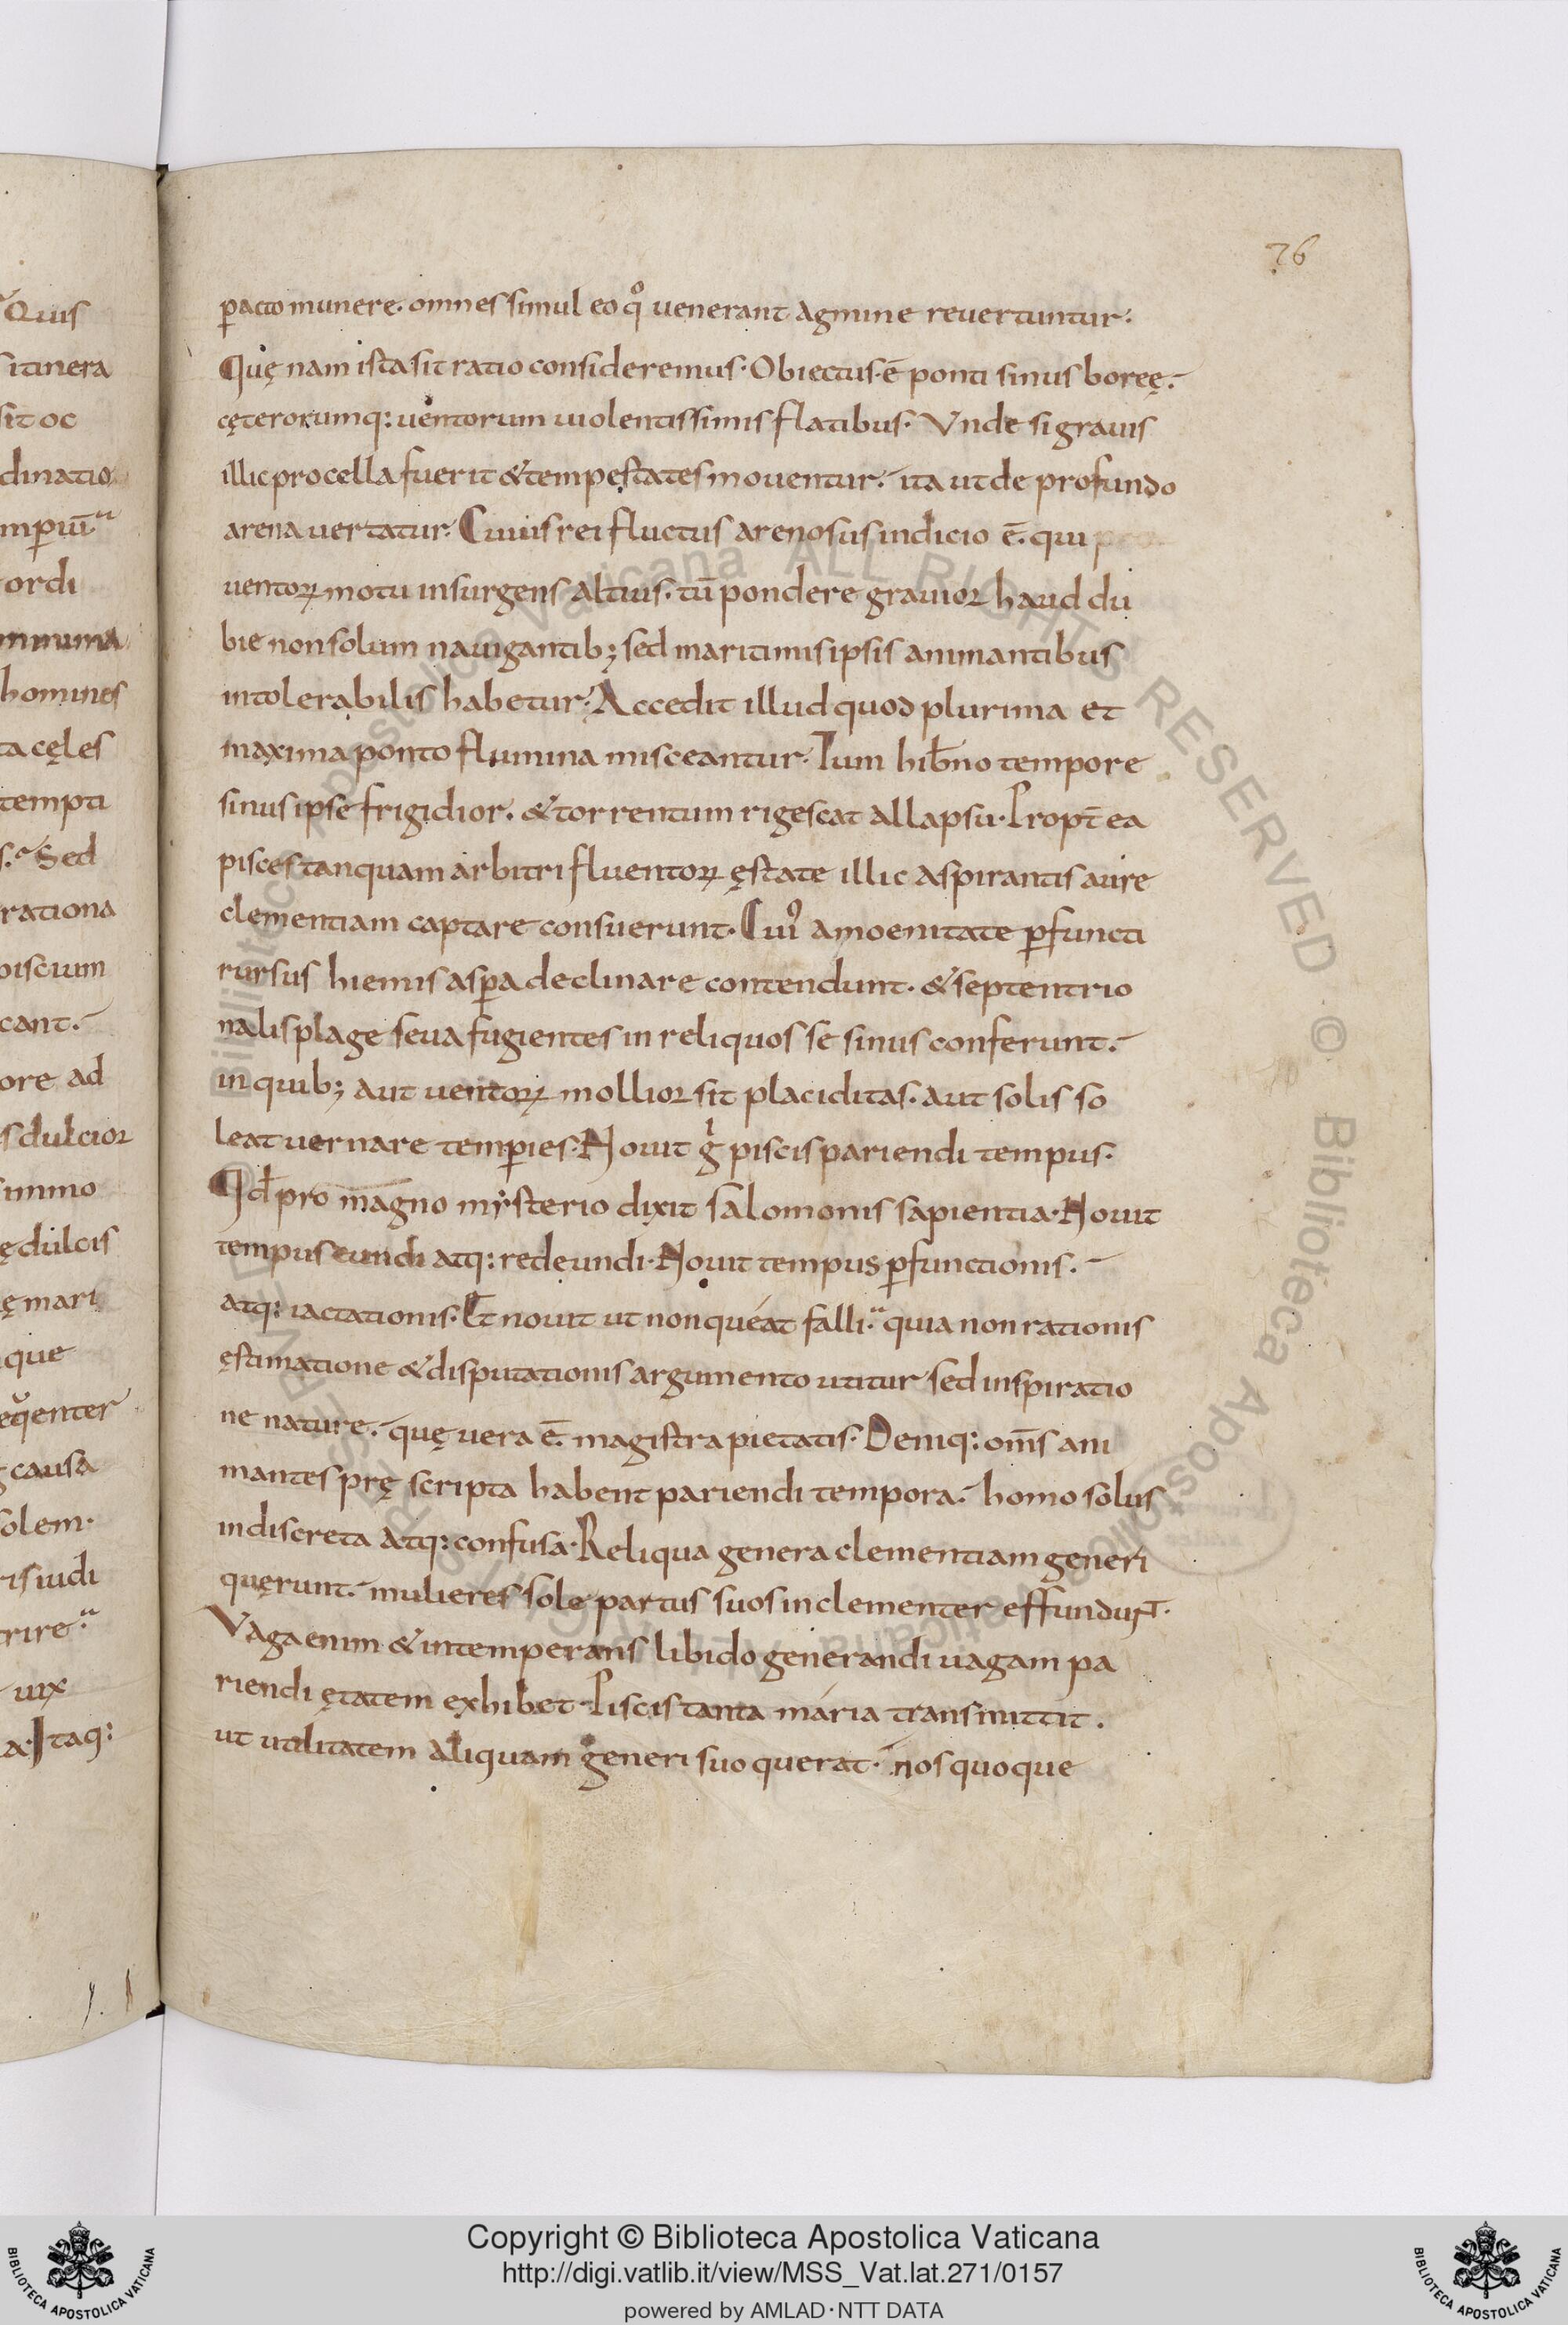 76
ꝑacto munere. omnes simul eo qͦ venerant agmine revertuntur:
Quę nam ista sit ratio consideremus. Obiectus. ē ponti sinus boreę.
cęterorumq: uentorum uiolentissimis flatibus. Vnde si grauis
illic procella fuerit & tempestates moventur. ita ut de profundo
arena uertatur. Cuius rei fluctus arenosus indicio ē. qui
uentoꝝ motu insurgens altius. tū pondere grauior haud du
bie non solum nauigantib; sed maritimis ipsis animantibus
intolerabilis habetur. Accedit illud quod plurima et
maxima ponto flumina misceantur. Tum hiƀno tempore
sinus ipse frigidior. & torrentum rigescat allapsu. Propt̄ ea
pisces tanquam arbitri fluentoꝝ ęstate illic aspirantis aure
clementiam captare consuerunt. Cuiꝰ amoenitate ꝑfuncti
rursus hiemis asꝑa declinare contendunt. & septentrio
nalis plage seua fugientes in reliquos se sinus conferunt.
in quib; aut uentoꝝ mollior sit placiditas. aut solis so
leat uernare temꝑies. Nouit gͥ piscis pariendi tempus.
Qđ pro magno mysterio dixit salomonis sapientia. Nouit
tempus eundi atq: redeundi. Nouit tempus ꝑfunctionis.
atq: iactationis. Et nouit ut non queat falli. quia non rationis
ęstimatione & disputationis argumento utitur sed inspiratio
ne nature. quę uera ē. magistra pietatis. Deniq: om̄s ani
mantes prę scripta habent pariendi tempora. homo solus
indiscreta atq: confusa. Reliqua genera clementiam generi
quęrunt. mulieres sole partus suos inclementer effundunt.
Vaga enim & intemperans libido generandi uagam pa
riendi ętatem exhibet. Piscis tanta maria transmittit.
ut utilitatem aliquam generi suo querat. nos quoque
Quis
itinera
sit oc
dinatio
mꝑiū
ordi
homines
ta cęles
tempti
s. Sed
rationa
piscium
cant.
ore ad
s dulcior
immo
ę dulcis
ę mari
que
causa
solem.
ris iudi
trire
uix
a. Itaq:
Biblioteca Apostolica Vaticana ALL RIGHTS RESERVED © Biblioteca Apostolica Vaticana ALL RIGHTS RESERVED ©
Copyright © Biblioteca Apostolica Vaticana
http://digi.vatlib.it/view/MSS_Vat.lat.271/0157
powered by AMLAD·NTT DATA
BIBLIOTECA APOSTOLICA VATICANA
BIBLIOTECA APOSTOLICA VATICANA